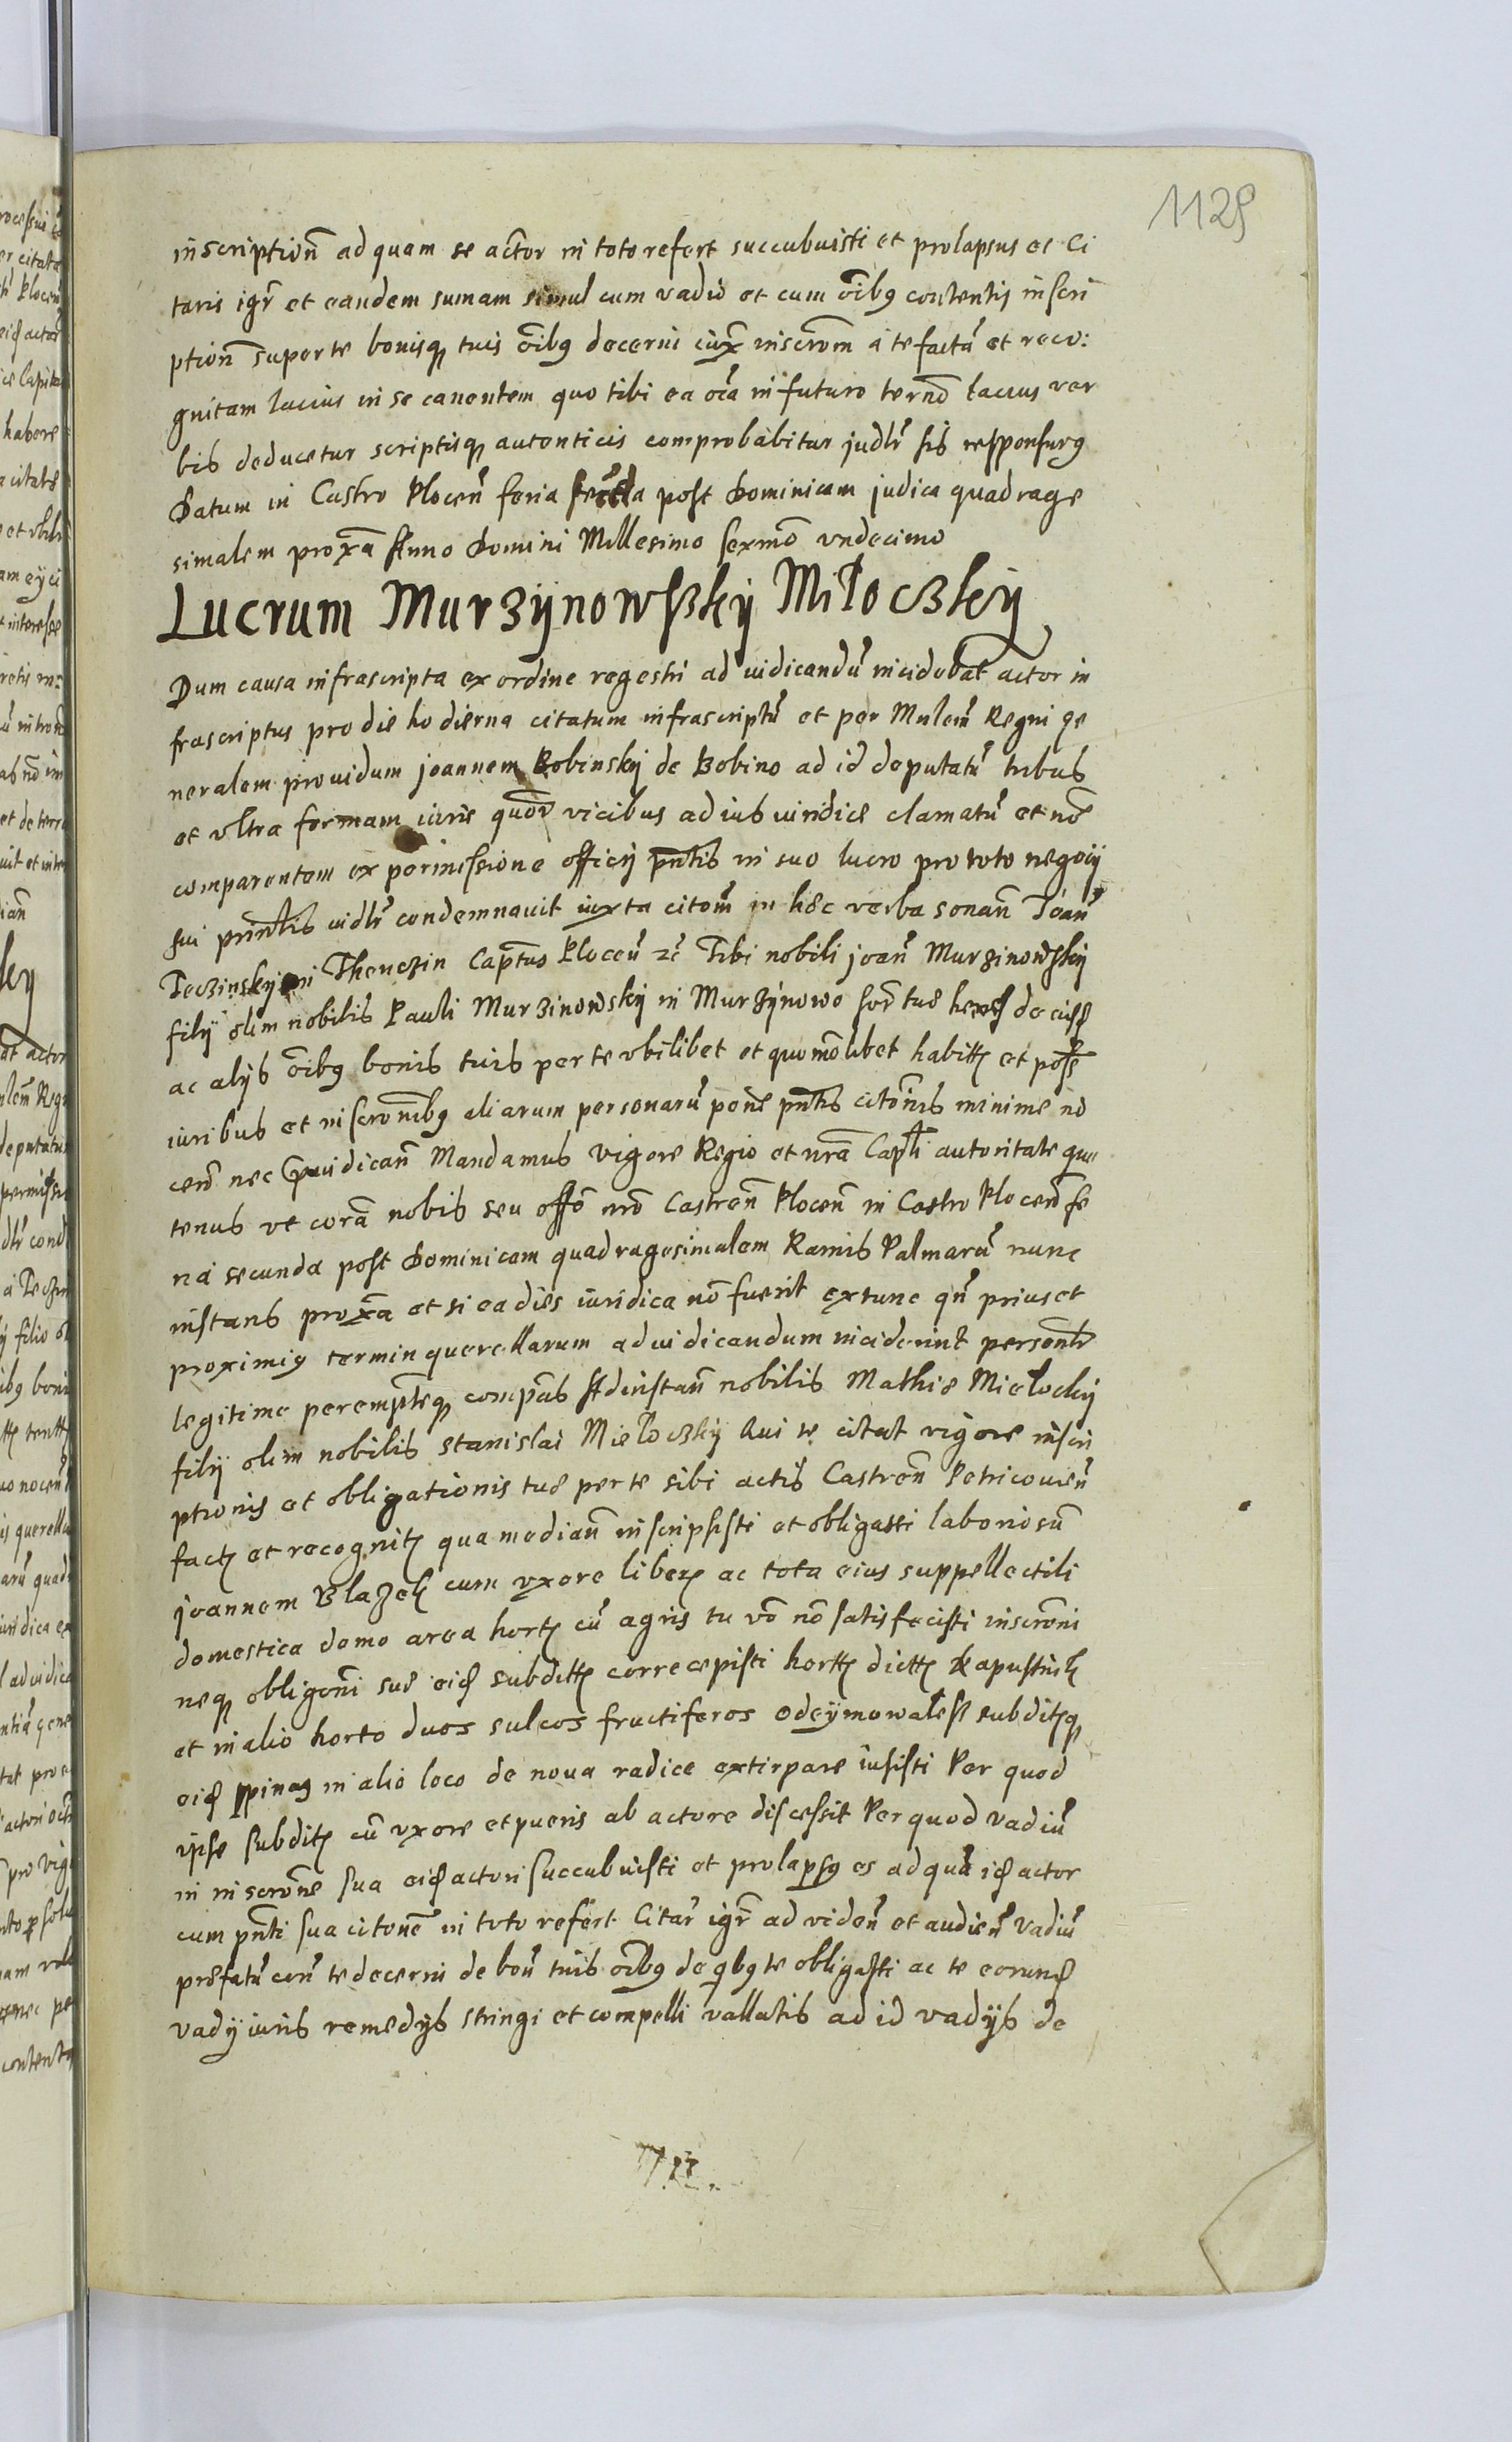 1129
inscriptioñ ad quam se actor in toto refert succubuisti et prolapsus es Ci
taris igr̃ et eandem sumam simul cum vadio et cum oĩbq contentis inscri
ptioñ super te bonisq tuis oĩbq decerni iux̃ inscrõm a te factã et reco:
gnitam lacius in se canentem quo tibi ea oĩa in futuro terno lacius ver
bis deducetur scriptisq autenticis comprobabitur judlr̃ sis responsurq
Datum in Castro Plocen̄ feria secunda post Dominicam judica quadrage
simalem prox̃a Anno Domini Millesimo sexmo undecimo
Lucrum Murzÿnowsky Miłoczky
Dum causa infrascripta ex ordine regestri ad iudicandũ incidebat actor in
frascriptus pro die hodierna citatum infrascriptũ et per Mnlem̃ Regni ge
neralem providum joannem Bobinsky de Bobino ad id deputatũ tribus
et ultra formam iuris quor̃ vicibus ad ius iuridice clamatũ et nõ
comparentem ex permissione officij pñtis in suo lucro pro toto negocij
sui prinl̃is iudlr̃ condemnavit iuxta citom̃ in hæc verba sonañ Joañ
Teczinsky in Thenczin Capt̃us Plocen̄ zc̃ Tibi nobili joañ Murzinowsky
filij olim nobilis Pauli Murzinowsky in Murzÿnowo sor̃ tuæ hered de eisd
ac alijs oĩbq bonis tuis per te ubilibet et quomõlibet habitt et poss̃
iuribus et inscronĩbq aliarum personarũ pone pñtis citõnis minime no
ceñ nec pręiudicañ Mandamus vigore Regio et nra Capl̃i autoritate qua
tenus ut corã nobis seu offõ nrõ Castren̄ Plocen̄ in Castro Plocen̄ fe
ria secunda post Dominicam quadragesimalem Ramis Palmarũ nunc
instans prox̃a et si ea dies iuridica nõ fuerit extunc qñ prius et
proximiq termin querellarum ad iudicandum inciderint personlr̃
legitime perempt̃eq compeas Ad instañ nobilis Mathiæ Miełocky
filij olim nobilis Stanislai Miełoczky Qui te citat vigore inscri
ptionis et obligationis tuæ per te sibi actis Castren̄ Petricovien̄
fact et recognit qua median̄ inscripsisti et obligasti laboriosũ
joannem Blazek cum uxore liber ac tota eius suppellectili
domestica domo area hort cũ agris tu võ nõ satisfecisti inscrõni
neq obligõni suæ eid subditt correcepisti hortt dictt kapustnik
et in alio horto duos sulcos fructiferos odeÿmowalesz subditq
eid spinas in alio loco de nova radice extirpare iusisti Per quod
ipse subdit cũ uxore et pueris ab actore discessit Per quod vadiũ
in inscrõne sua eid actori succubuisti et prolapsq es ad quã id actor
cum pñti sua citone in toto refert Citar̃ igr̃ ad viden̄ et audien̄ vadiũ
præfatũ con̄ te decerni de bon̄ tuis oĩbq de qbq te obligasti ac te eorund
vadij iuris remedÿs stringi et compelli vallatis ad id vadÿs de